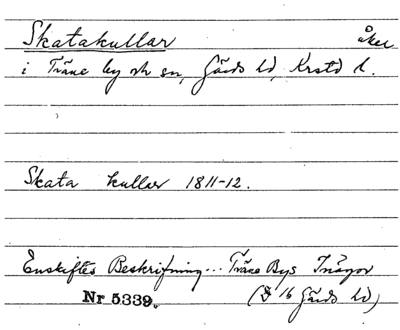 Skatakullar åker
i Träne by och sn, Gärds hd, Krstd l.
Skata kullar 1811-12.
Enskiftes Beskrifning... Träne Bys Inägor
Nr 5339. (D 16 Gärds hd)